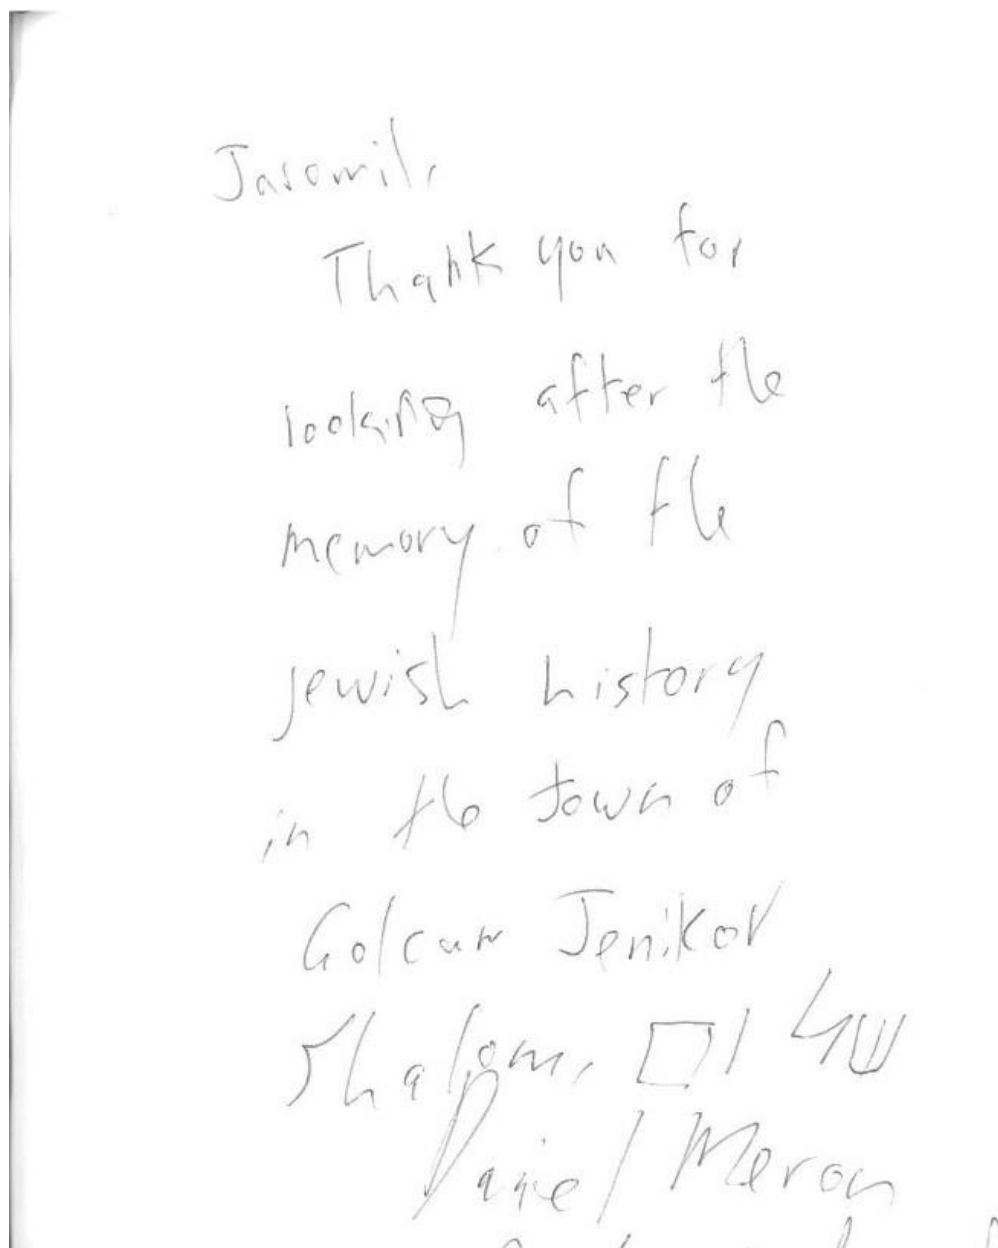 Jaromil,
Thank you for
looking after the
memory of the
jewish history
in the town of
Golcuw Jenikov
Shalom, שלום
Daniel Meron